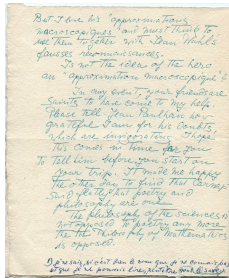 But I love his "approximations
macroscopiques" and must think to
use them together with Jean Wahl's
fausses reconnaissances.
Is not the idea of the hero
an "approximation macroscopique"?
In any event, your friends are
Saints to have come to my help.
Please tell Jean Paulhan how
grateful I am for his doubts
which are invigorating. I hope
this comes in time for you
to tell him before you start on
your trip. It made me happy
the other day to find that Carnap
said flatly that poetry and
philosophy are one.
The philosophy of the sciences is
not opposed to poetry any more
than the philosophy of mathematics
is opposed.